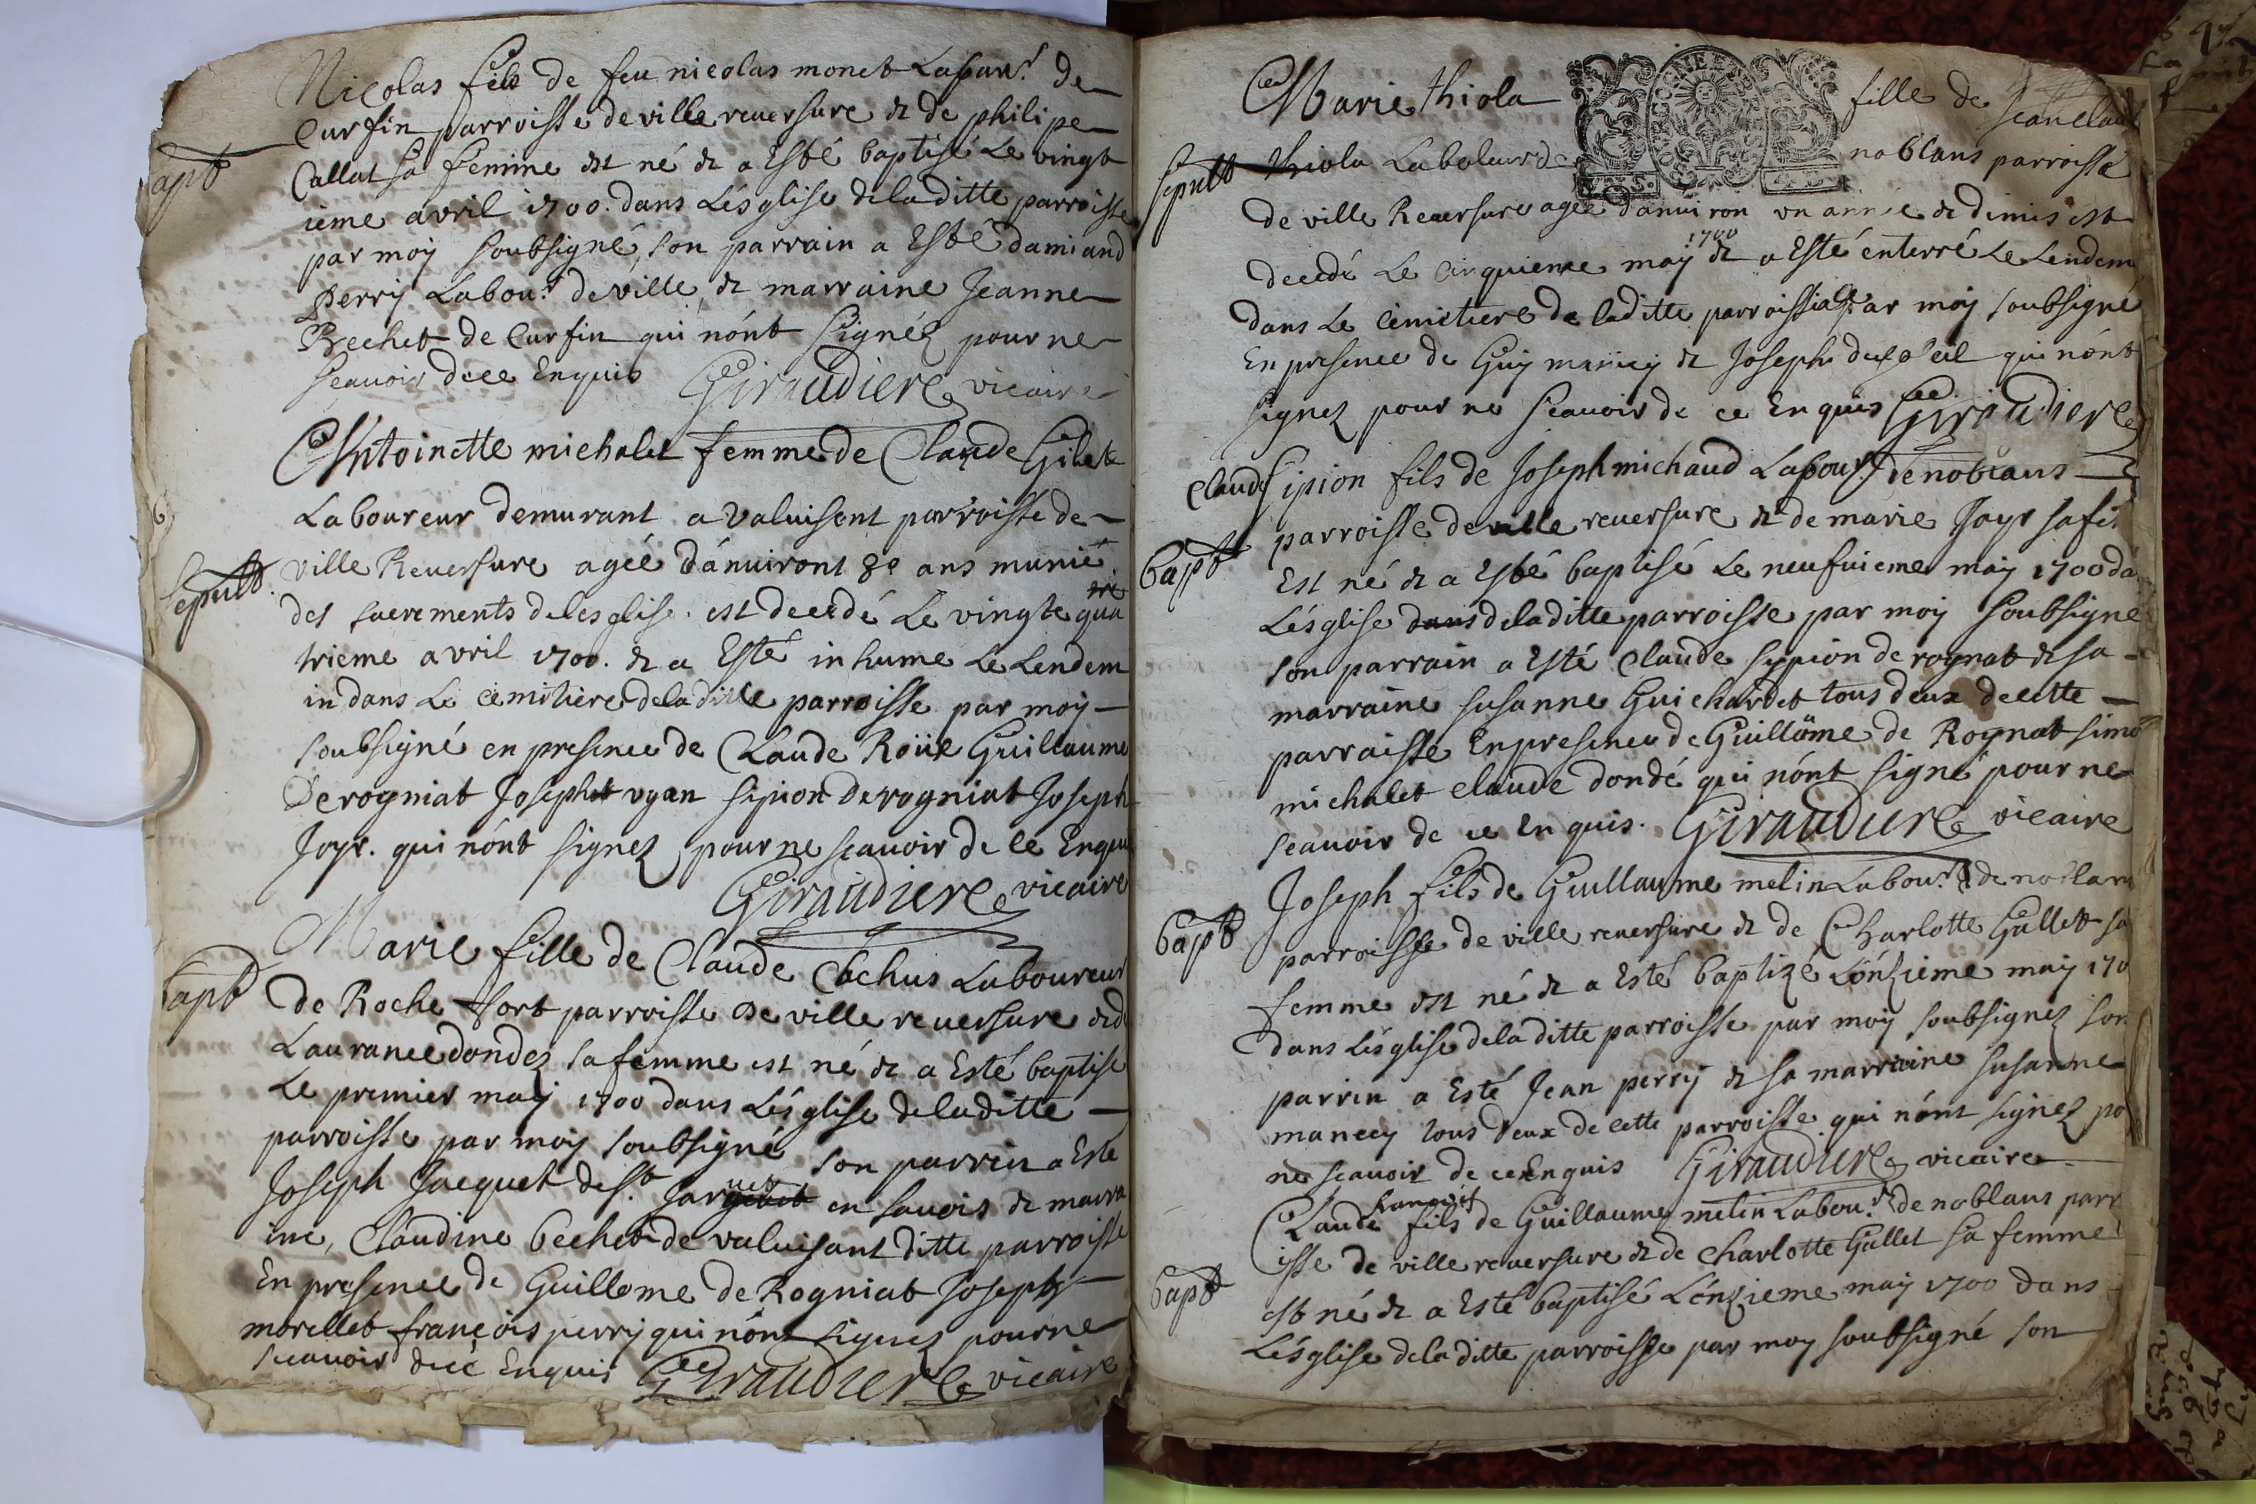 Nicolas fils de feu nicolas monet Labour. de
Curfin parroisse de ville reuersure & de philipe
bapt
Callat sa femme est né & a Esté baptisé Le vingt
ieme avril 1700. dans Lésglise deladitte parroisse
par moÿ soubsigné, son parrain a Esté damiand
perrÿ Labour. deville, & marraine Jeanne
Bechet de Curfin qui nónt signéz pour ne
scauoir dece Enquis Giraudiere vicaire
Antoinette michalet femme de Claude Gilet
Laboureur demurant a Valuisent parroisse de
Sepult.
ville Reuersure agée dánuiront 80 ans munie
des sacrements delesglise est decedé Le vingte qua
trieme avril 1700. & a Esté inhume Le Lendem
in dans Le cemitiere deladitte parroisse par moÿ
soubsigné en presence de Claude Roüx Guillaume
Derogniat Josephet vgan sipion Derogniat Joseph
Joyr. qui nónt signez pour ne scauoir de ce Enquis
Giraudiere vicaire
Marie fille de Claude Cachus Laboureur
bapt
de Roche fort parroisse de ville reuersure & d
Laurance dondez sa femme est né & a Esté baptisé
Le premier maÿ 1700 dans Lésglise deladitte
parroisse par moÿ soubsigné son parrin a Esté
Joseph Jacquet de St. en sauois & marra
ine, Claudine bechet de valuisant ditte parroisse
En presence de Guillome de Rogniat Joseph
morellet françois perrÿ qui nónt signez pour ne
scauoir dece Enquis Giraudiere vicaire
Marie thiola fille de Jean Claude
sepult
thiola Laboleur de noblans parroisse
de ville Reuersure agée dánuiron vn anne & dimis est
decedé Le cinquieme maÿ 1700 & a Esté enterré Le Lendem
dans Le cimetiere de laditte parroissialle par moÿ soubsigné
En presence de Guÿ & Joseph dusoleil qui nónt
signez pour ne scauoir de ce Enquis Giraudiere
Claude sipion fils de Joseph michaud Labour. de noblans
parroisse de ville reuersure & de marie Joyr sa fe
bapt
Est né & a Esté baptisé Le neufuieme maÿ 1700 dá
Lésglise dans deladitte parroisse par moÿ soubsigné
son parrain a Esté Claude sipion de rognat & sa
marraine susanne Guichardet tous deux decette
parraisse En presence de Guillôme de Rognat simo
michalet claude dondé qui nónt signé pour ne
scauoir de ce Enquis. Giraudiere vicaire
Joseph fils de Guillaume melin Labour. de noblans
bapt
parroisse de ville reuersure & de Charlotte Gallet sa
femme est né & a Esté baptizé Lónzieme maÿ 170
dans Lésglise deladitte parroisse par moÿ soubsignez son
parrin a Esté Jean perrÿ & sa marraine susanne
mancey tous deux de cette parroisse qui nónt signez po
ne scauoir de ce Enquis Giraudiere vicaire
Claude francois fils de Guillaume melin Labour. de noblans parr
oisse de ville reuersure & de Charlotte Gallet sa femme
bapt
est né & a Esté baptisé Lónzieme maÿ 1700 dans
Lésglise deladitte parroisse par moy soubsigné son